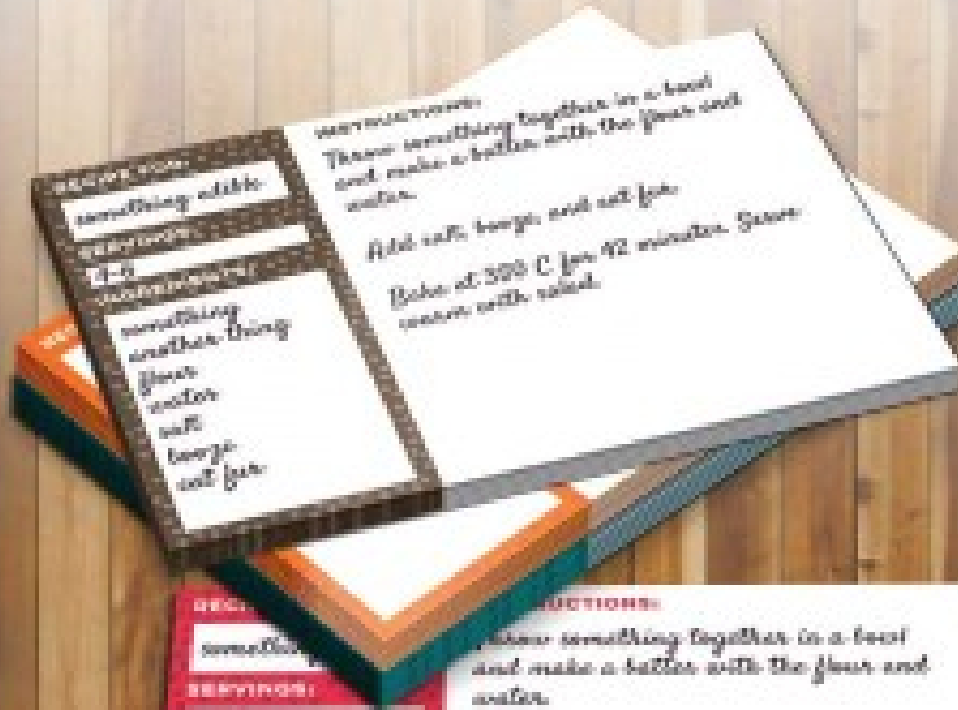 RECIPE FOR:
something edible
SERVINGS:
4-6
INGREDIENTS:
something
another thing
flour
water
salt
booze
cat fur
INSTRUCTIONS:
Throw something together in a bowl
and make a batter with the flour and
water.
Add salt, booze, and cat fur.
Bake at 300 C for 42 minutes. Serve
warm with salad.
RECI
somethin
SERVINGS:
UCTIONS:
hrow something together in a bowl
and make a batter with the flour and
water.